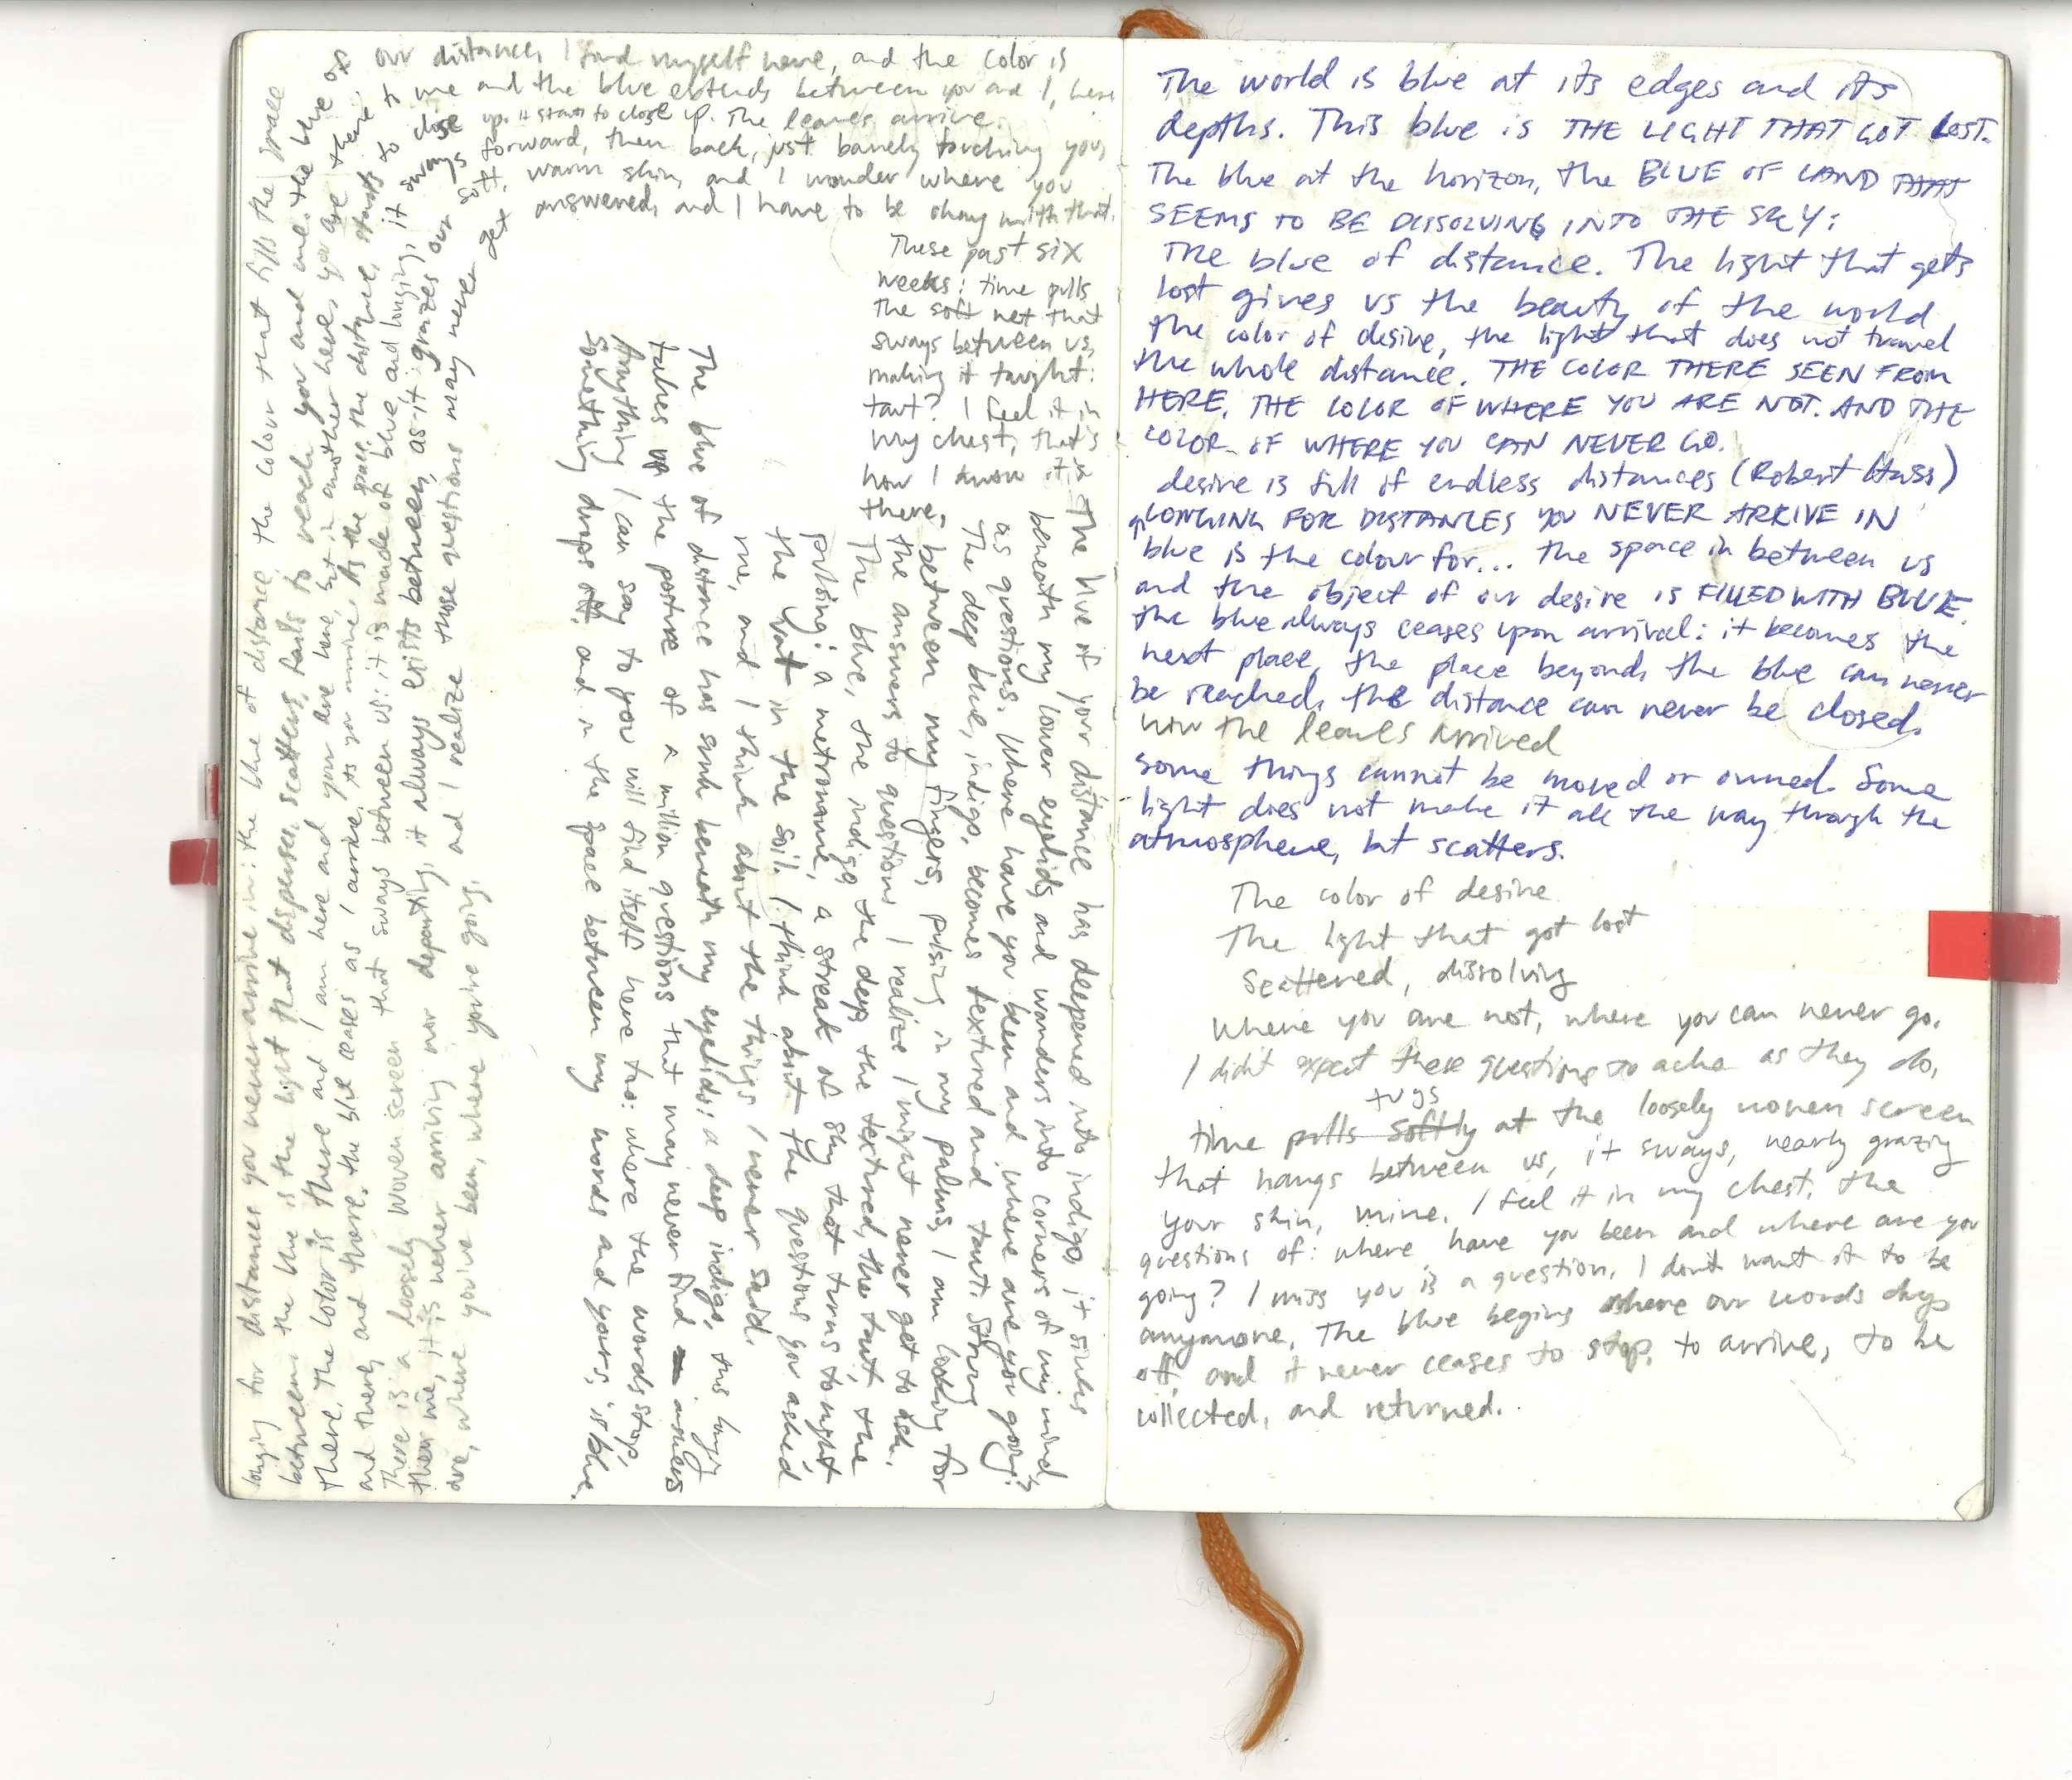 longing for distances you never arrive in: the blue of distance, the colour that fills the space
between. the blue is the light that disperses, scatters, fails to reach you and me. the blue of
there. the color is there and I am here and your are here, but in another here, you are there,
and there, and there. the blue ceases as I arrive. As you arrive. As the space, the distance, starts to
There is a loosely woven screen that sways between us: it is made of blue and longing, it sways
then me, it is neither arriving nor departing, it always exists between, as it grazes our
are, where you've been, where you're going. and I realize those questions may never get
our distances, I find myself here, and the color is
me and the blue extends between you and I, here
close up. it starts to close up. The leaves arrive.
forward, then back, just barely touching you,
soft, warm skin, and I wonder where you
answered, and I have to be okay with that.
These past six
weeks: time pulls
the soft net that
sways between us,
making it taught:
taut? I feel it in
my chest, that's
how I know it is
there,
The blue of your distance has deepened into indigo, it sinks
beneath my lower eyelids and wanders into corners of my mind,
as questions. Where have you been and where are you going?
The deep blue, indigo, becomes textured and taut: string
between my fingers, pulsing in my palms, I am looking for
the answers to questions I realize I might never get to ask.
The blue, the indigo, the deep, the textured, the taut, the
pulsing: a metronome, a streak of sky that turns to night
the want in the soil. I think about the questions you asked
me, and I think about the things I never said.
The blue of distance has sunk beneath my eyelids: a deep indigo, this longing
takes up the posture of a million questions that may never find answers
Anything I can say to you will find itself here too: where the words stop,
something drops off, and in the space between my words and yours, is blue.
The world is blue at its edges and its
depths. This blue is THE LIGHT THAT GOT LOST.
The blue at the horizon, the BLUE OF LAND THAT
SEEMS TO BE DISSOLVING INTO THE SKY:
The blue of distance. The light that gets
lost gives us the beauty of the world
the color of desire, the light that does not travel
the whole distance. THE COLOR THERE SEEN FROM
HERE, THE COLOR OF WHERE YOU ARE NOT. AND THE
COLOR OF WHERE YOU CAN NEVER GO.
desire is full of endless distances (Robert Hass)
LONGING FOR DISTANCES YOU NEVER ARRIVE IN
blue is the colour for... the space in between us
and the object of our desire is FILLED WITH BLUE.
the blue always ceases upon arrival: it becomes the
next place, the place beyond, the blue can never
be reached, the distance can never be closed.
now the leaves arrived
some things cannot be moved or owned. Some
light does not make it all the way through the
atmosphere, but scatters.
The color of desire
The light that got lost
Scattered, dissolving
where you are not, where you can never go.
I didn't expect these questions to ache as they do,
tugs
time pulls softly at the loosely woven screen
that hangs between us, it sways, nearly grazing
your skin, mine. I feel it in my chest. the
questions of: where have you been and where are you
going? I miss you is a question, I don't want it to be
anymore. The blue begins where our words drop
off, and it never ceases to stop, to arrive, to be
collected, and returned.